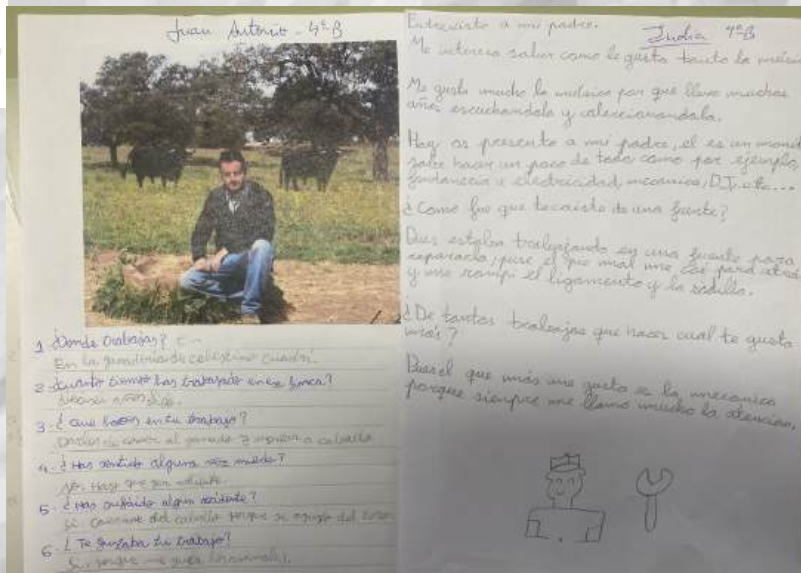 Juan Antonio - 4º B
1 ¿Donde trabajas?
En la ganaderia de celestino cuadri.
2 ¿Cuanto tiempo has trabajado en esa finca?
3. ¿ que haces en tu trabajo?
Darles de comer al ganado y montar a caballo
4. ¿ Has sentido alguna vez miedo?
No. Hay que ser valiente.
5. ¿Has sufrido algun accidente?
Si caerme del caballo porque se asusto del toro
6. ¿ Te gustaba tu trabajo?
Si, porque me gusta los animales.
Entrevista a mi padre.
India 4º B
Me interesa saber como le gusta tanto la
Me gusta mucho la musica por que llevo muchos
años escuchandola y coleccionandola.
Hoy os presento a mi padre, el es un
sabe hacer un poco de todo como por ejemplo,
fontaneria electricidad, mecanica, DJ, etc...
¿Como fue que te caiste de una fuente?
Pues estaba trabajando en una fuente para
repararla, puse el pie mal me cai para atras
y me rompi el ligamento y la rodilla.
¿De tantos trabajos que haces cual te gusta
más?
Pues el que más me gusta es la mecanica
porque siempre me llamo mucho la atencion.